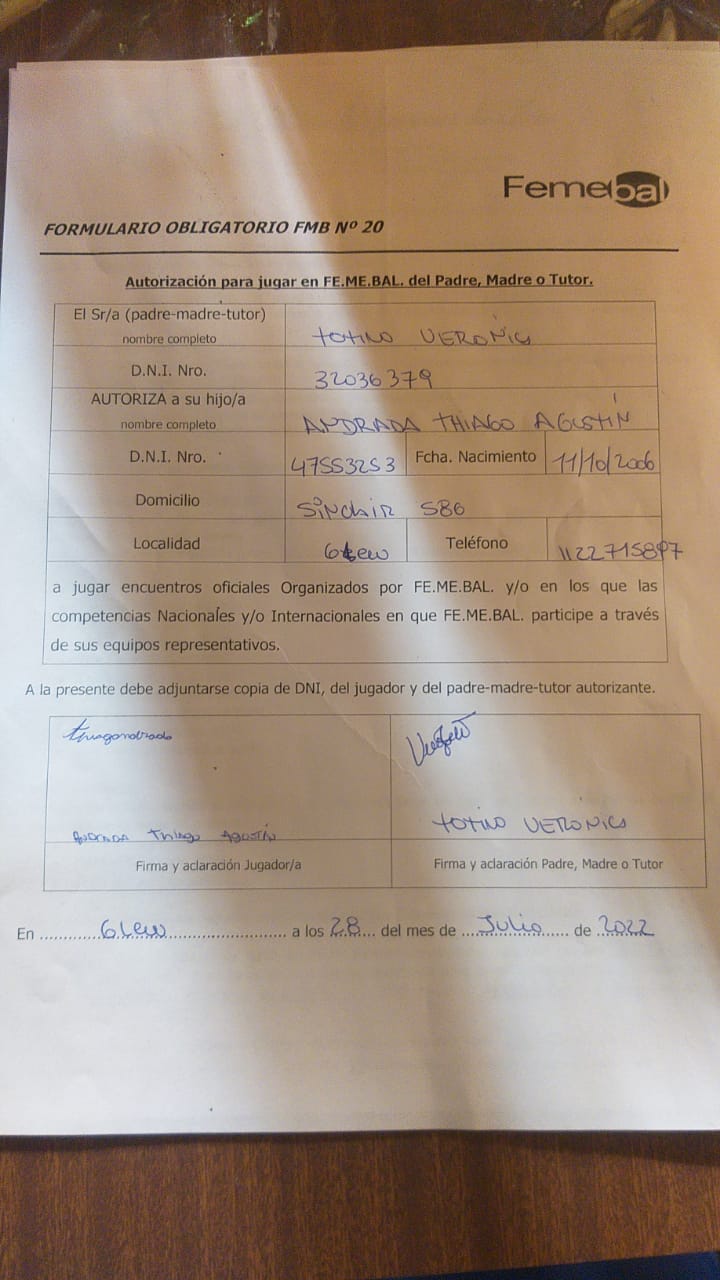 Femebal
FORMULARIO OBLIGATORIO FMB Nº 20
Autorización para jugar en FE.ME.BAL. del Padre, Madre o Tutor.
El Sr/a (padre-madre-tutor)
nombre completo
TOTINO VERONICA
D.N.I. Nro.
32036379
AUTORIZA a su hijo/a
nombre completo
ANDRADA THIAGO AGUSTÍN
D.N.I. Nro.
47553253
Fcha. Nacimiento
11/10/2006
Domicilio
Sinclair 586
Localidad
Glew
Teléfono
1122715897
a jugar encuentros oficiales Organizados por FE.ME.BAL. y/o en los que las
competencias Nacionales y/o Internacionales en que FE.ME.BAL. participe a través
de sus equipos representativos.
A la presente debe adjuntarse copia de DNI, del jugador y del padre-madre-tutor autorizante.
Andrada Thiago Agustín
TOTINO VERONICA
Firma y aclaración Jugador/a
Firma y aclaración Padre, Madre o Tutor
En ............Glew.............................. a los 28... del mes de ....Julio........ de 2022